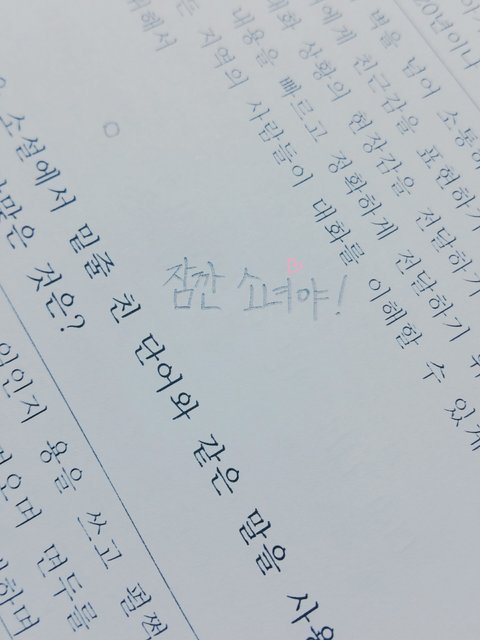 20년이나
벽을 넘어 소통하
에게 친근감을 표현하기
대화 상황의 현장감을 전달하기
내용을 빠르고 정확하게 전달하기 위
지역의 사람들이 대화를 이해할 수 있게
위해서
잠깐 소녀야!
소설에서 밑줄 친 단어와 같은 말을 사용
맞은 것은?
인지 용을 쓰고 펄쩍
오며 면두를
하며